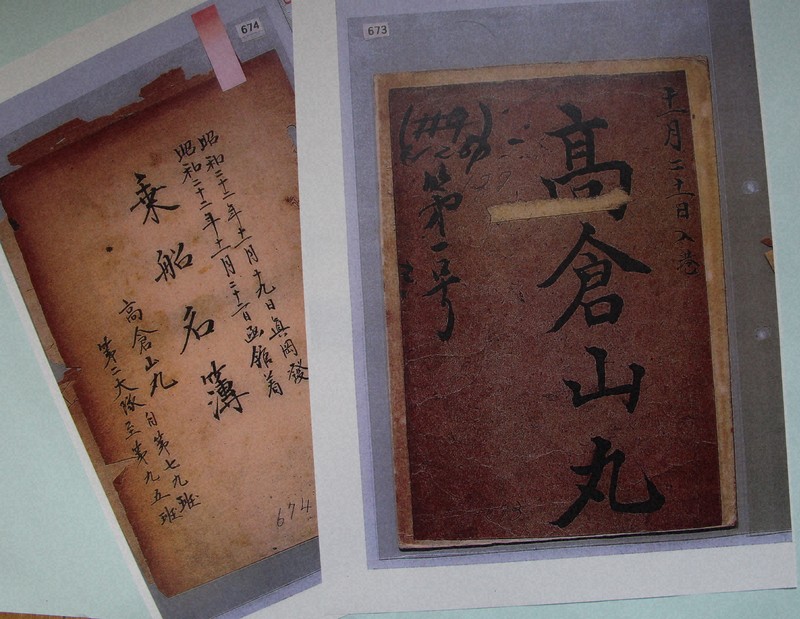 674
昭和二十二年十一月十九日眞岡發
昭和二十二年十一月二十一日函館着
乗船名簿
高倉山丸 自第七九班
第二大隊 至第九五班
674
673
十一月二十一日入港
高倉山丸
第一号